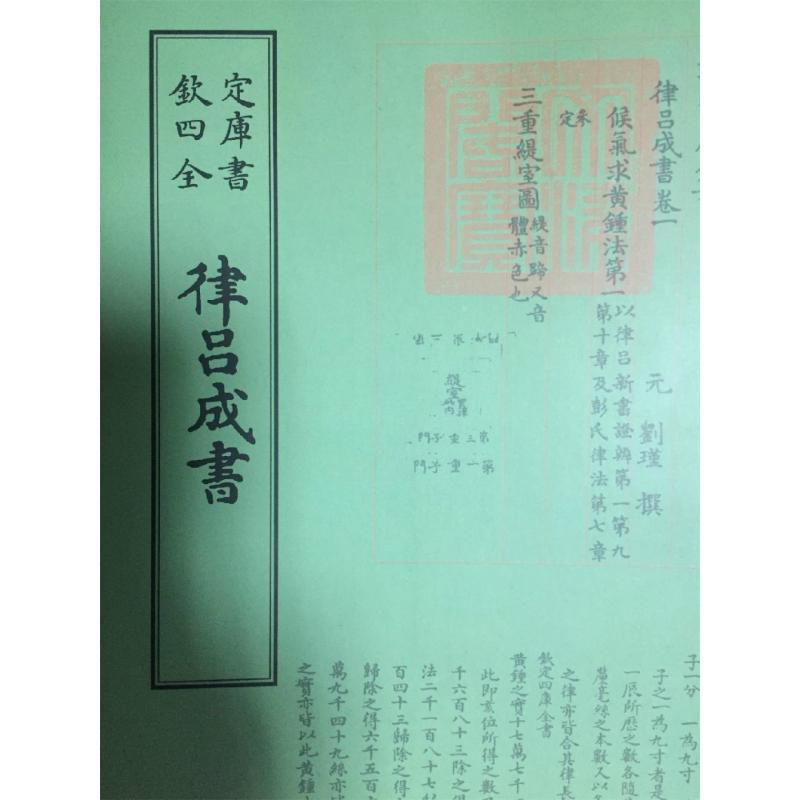 欽定
四庫
全書
律呂成書
律呂成書卷一
元 劉瑾 撰
候氣求黃鍾法第一
以律呂新書證辨第一第九
第十章及彭氏律法第七章
參定
三重緹室圖
緹音蹄又音
體赤色也
緹室
第三重子門
第一重子門
子一分 一為九寸
子之一為九寸者是
一辰所歷之數各隨
釐毫絲之本數又以
之律亦皆合其律長
欽定四庫全書
黃鍾之實十七萬七千
此即亥位所得之數
千六百八十三除之得
法二千一百八十七
百四十三歸除之得
歸除之得六千五百
萬九千四十九絲亦
之實亦皆以此黃鍾